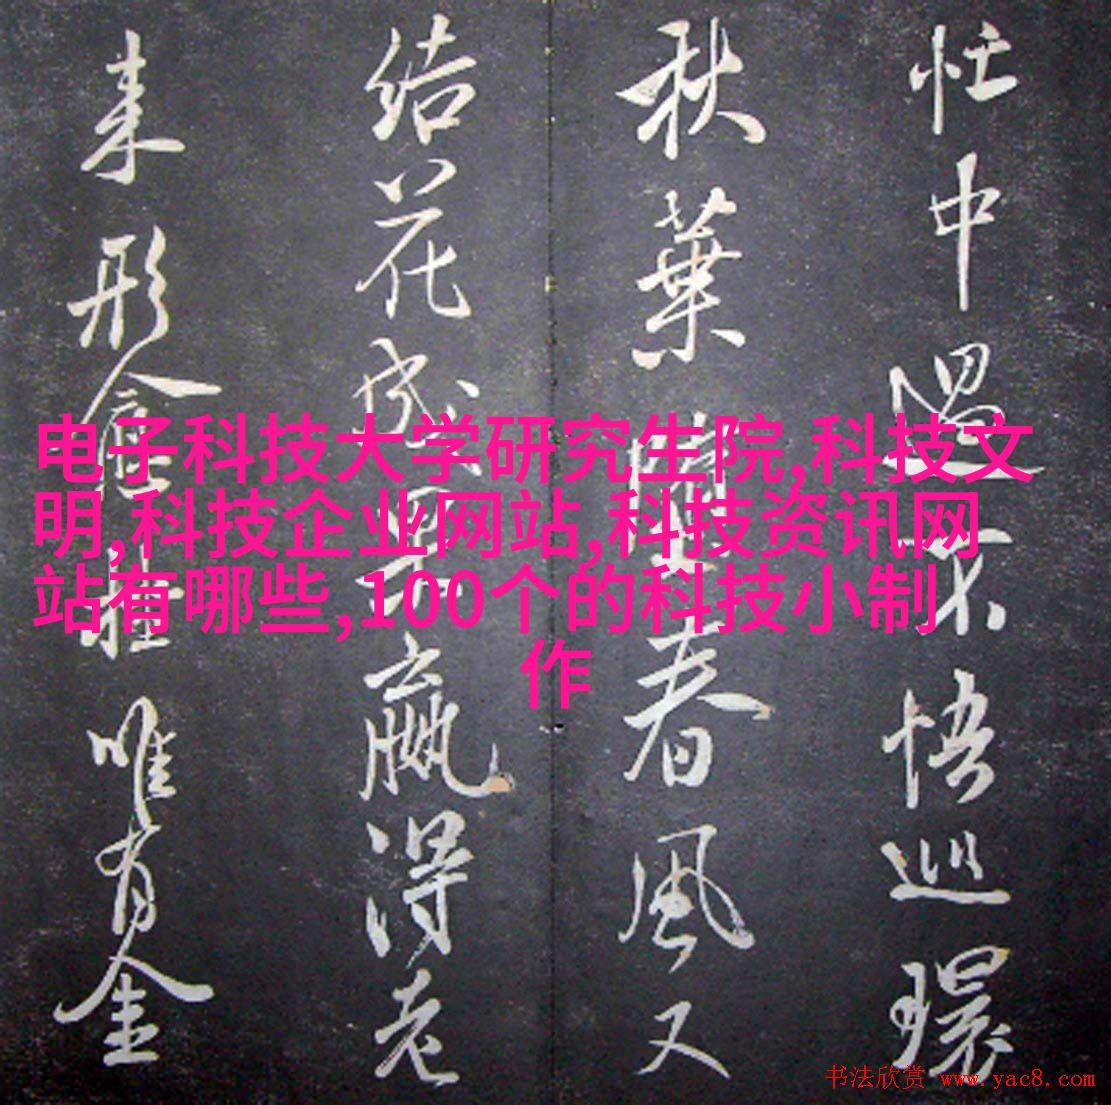 电子科技大学研究生院,科技文
明,科技企业网站,科技资讯网
站有哪些,100个的科技小制
作
忙中不悟巡環
秋葉春風又
结花成贏得老
来形唯有金
书法欣赏 www.yac8.com